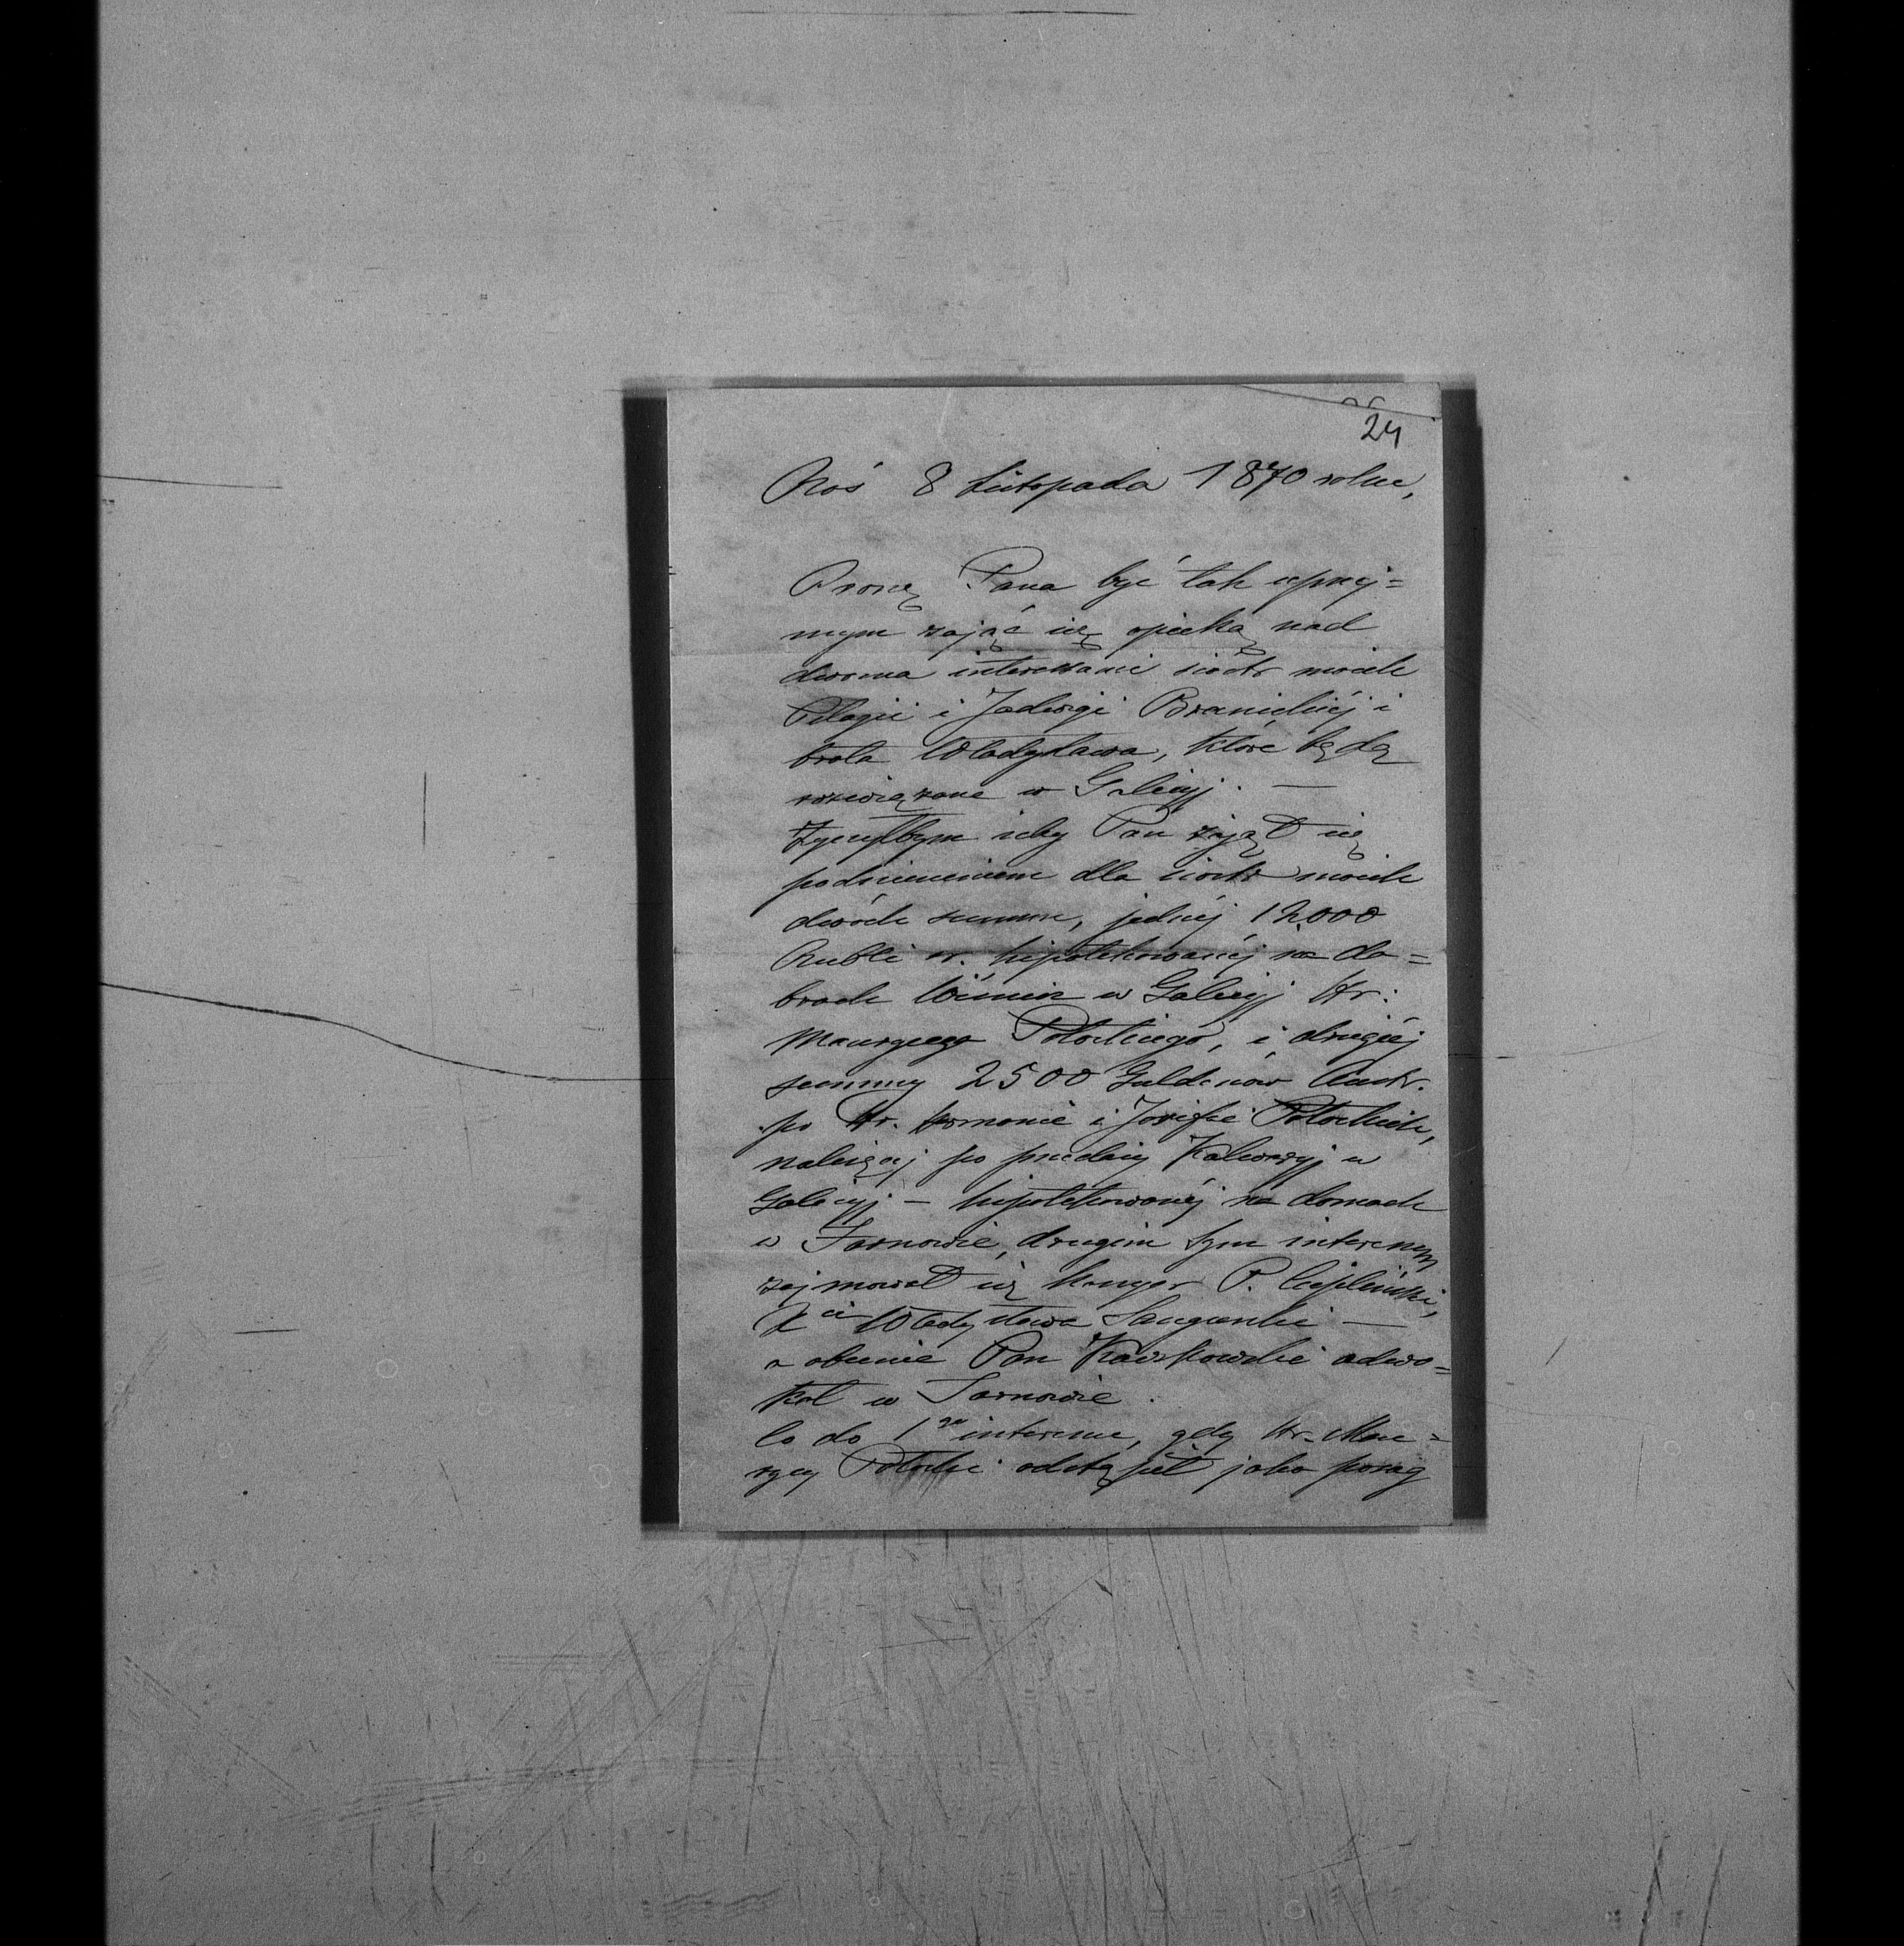 24
Roś 8 Listopada 1870 roku,
Proszę Pana być tak uprzej=
mym zająć się opieką nad
dwoma interessami sióstr moich
Pelagii i Jadwigi Branickiéj i
brata Władysława, które będą
rozwiązane w Galicyj. —
Życzyłbym żeby Pan zajął się
podniesieniem dla sióstr moich
dwóch summ, jednéj 12,000
Rubli sr. hipotekowanéj na do=
brach w Galicyj Hr:
Maurycego Potockiego, i drugiéj
summy 2500 Guldenów Austr.
po Hr. Hermanie i Józefie Potockich,
należącej po przedaży Kalwaryj w
Galicyj — hipotekowanéj na domach
w Tarnowie, drugim tym interesem
zajmował się P.
Xcia Władysława Sanguszki —
a obecnie Pan Kaczkowski adwo=
kat w Tarnowie.
Co do 1go interesu, gdy Hr. Mau=
rycy Potocki odstąpił jako posag